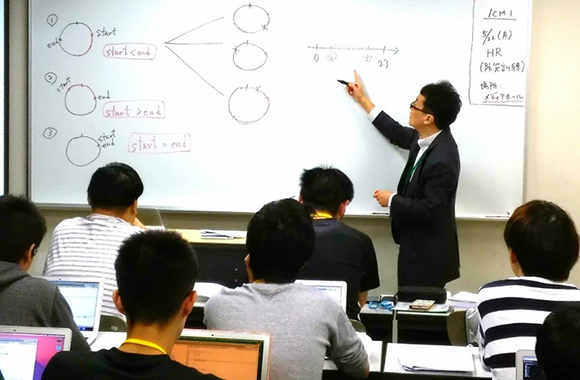 ①
start
end
start < end
②
start
end
start > end
③
start
end
start = end
0
23
1CM1
5/22(月)
HR
(防災訓練)
場所:
メディアホール